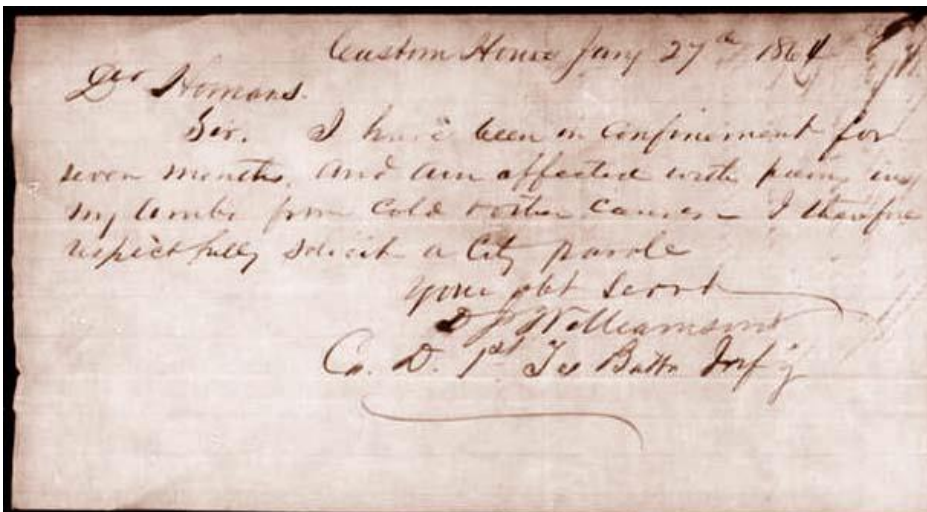 Custom House Jany 27th 1864
Dr Homans.
Sir. I have been in confinement for
seven months, and am affected with pains in
my limbs from cold & other causes – I therefore
respectfully solicit a City parole
Your obt Servt
D J Williamson
Co. D. 1st Tes Battn Inf'y